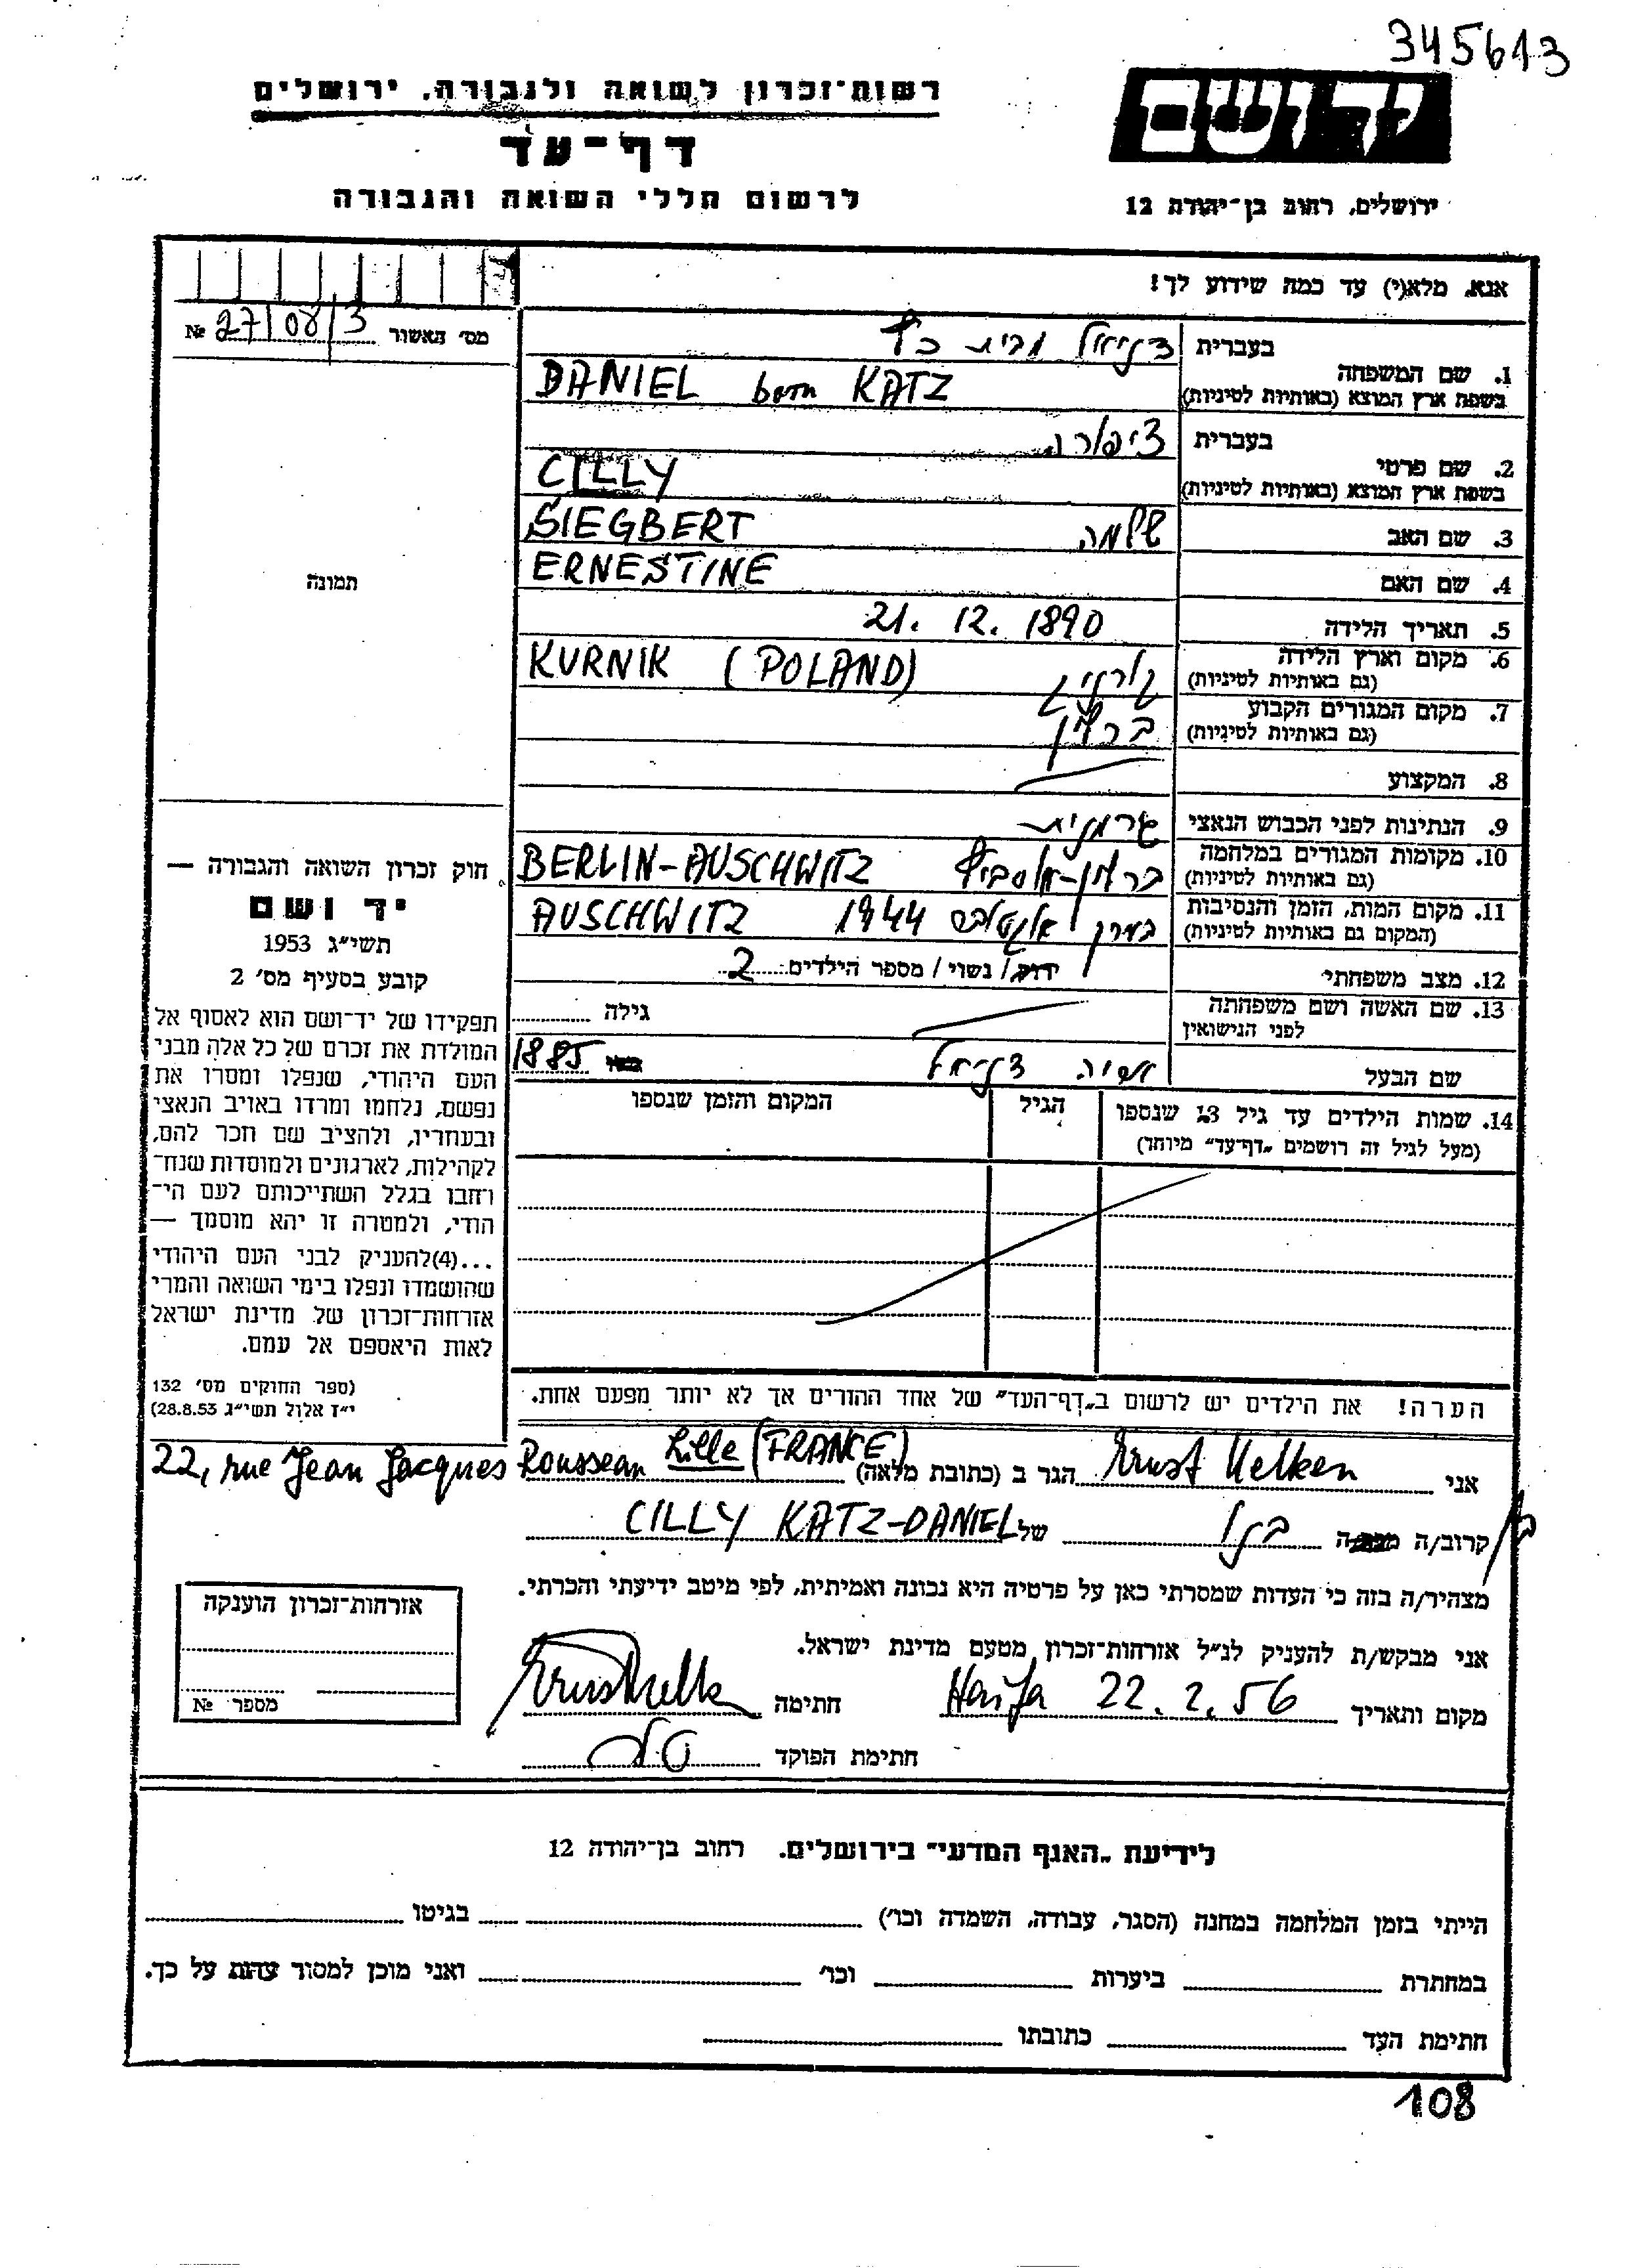 345613
רשות־זכרון לשואה ולגבורה, ירושלים
יד ושם
דף־עד
לרשום חללי השואה והגבורה
ירושלים, רחוב בן־יהודה 12
אנא, מלא(י) עד כמה שידוע לך!
מס׳ האשור 27/08/3 №
תמונה
בעברית דניאל מבית כץ
1. שם המשפחה
בשפת ארץ המוצא (באותיות לטיניות) DANIEL born KATZ
בעברית ציפורה
2. שם פרטי
בשפת ארץ המוצא (באותיות לטיניות) CILLY
3. שם האב שלמה SIEGBERT
4. שם האם ERNESTINE
5. תאריך הלידה 21. 12. 1890
6. מקום וארץ הלידה
(גם באותיות לטיניות) קורניק KURNIK (POLAND)
7. מקום המגורים הקבוע
(גם באותיות לטיניות) ברלין
8. המקצוע
9. הנתינות לפני הכבוש הנאצי גרמנית
10. מקומות המגורים במלחמה
(גם באותיות לטיניות) ברלין-אושביץ BERLIN-AUSCHWITZ
11. מקום המות, הזמן והנסיבות
(המקום גם באותיות לטיניות) אוקטובר 1944 AUSCHWITZ
12. מצב משפחתי רווק / נשוי / מספר הילדים 2
13. שם האשה ושם משפחתה
לפני הנישואין
גילה
שם הבעל דניאל 1885
14. שמות הילדים עד גיל 13 שנספו
(מעל לגיל זה רושמים „דף־עד” מיוחד)
הגיל
המקום והזמן שנספו
חוק זכרון השואה והגבורה —
יד ושם
תשי״ג 1953
קובע בסעיף מס׳ 2
תפקידו של יד־ושם הוא לאסוף אל
המולדת את זכרם של כל אלה מבני
העם היהודי, שנפלו ומסרו את
נפשם, נלחמו ומרדו באויב הנאצי
ובעוזריו, ולהציב שם וזכר להם,
לקהילות, לארגונים ולמוסדות שנח־
רובו בגלל השתייכותם לעם הי־
הודי, ולמטרה זו יהא מוסמך —
...(4)להעניק לבני העם היהודי
שהושמדו ונפלו בימי השואה והמרי
אזרחות־זכרון של מדינת ישראל
לאות היאספם אל עמם.
(ספר החוקים מס׳ 132
י״ז אלול תשי״ג 28.8.53)
הערה! את הילדים יש לרשום ב„דף־העד” של אחד ההורים אך לא יותר מפעם אחת.
אני Ernst Nelken הגר ב (כתובת מלאה) 22, rue Jean Jacques Rousseau Lille (FRANCE)
קרוב/ה בנו של CILLY KATZ-DANIEL
מצהיר/ה בזה כי העדות שמסרתי כאן על פרטיה היא נכונה ואמיתית, לפי מיטב ידיעתי והכרתי.
אני מבקש/ת להעניק לנ״ל אזרחות־זכרון מטעם מדינת ישראל.
מקום ותאריך Haifa 22.2.56 חתימה
חתימת הפוקד
אזרחות־זכרון הוענקה
מספר №
לידיעת „האגף המדעי” בירושלים. רחוב בן־יהודה 12
הייתי בזמן המלחמה במחנה (הסגר, עבודה, השמדה וכו׳) בגיטו
במחתרת ביערות וכו׳ ואני מוכן למסור עדות על כך.
חתימת העד כתובתו
108